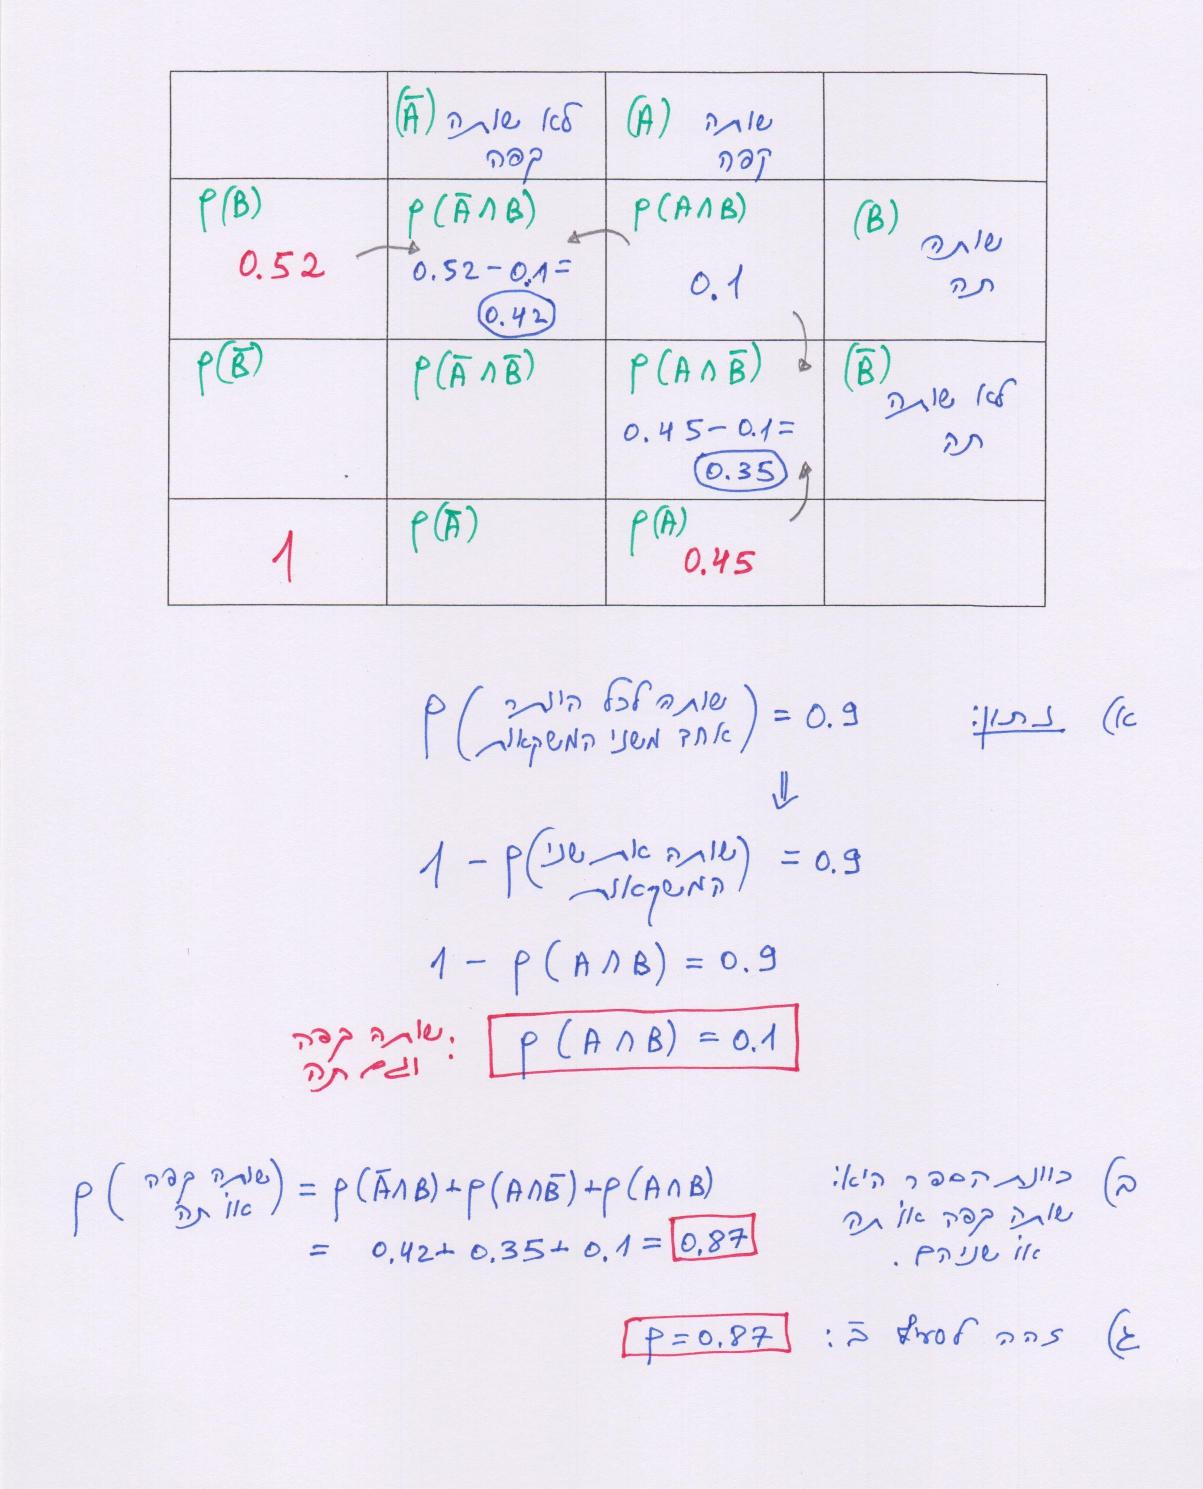 (A) שותה לא שותה (Ā)
קפה קפה
(B) P(A∩B) P(Ā∩B) P(B)
שותה 0.1 0.52-0.1= 0.52
תה 0.42
(B̄) P(A∩B̄) P(Ā∩B̄) P(B̄)
לא שותה 0.45-0.1=
תה 0.35
P(A) P(Ā) 1
0.45
א) נתון: P(שותה לכל היותר
אחד משני המשקאות) = 0.9
⇓
1 - P(שותה את שני
המשקאות) = 0.9
1 - P(A∩B) = 0.9
P(A∩B) = 0.1
שותה קפה :
וגם תה
ב) כוונת הספר היא:
שותה קפה או תה
או שניהם.
P(שותה קפה
או תה) = P(Ā∩B)+P(A∩B̄)+P(A∩B)
= 0.42+0.35+0.1=0.87
ג) זהה לסעיף ב: P=0.87